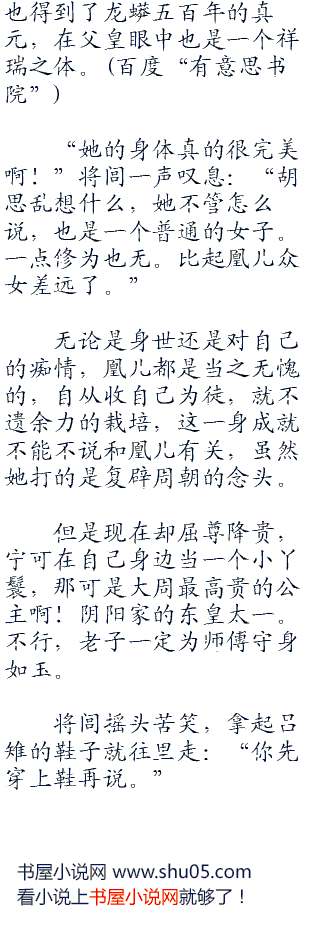 也得到了龙蟒五百年的真
元，在父皇眼中也是一个祥
瑞之体。(百度“有意思书
院”)
“她的身体真的很完美
啊！”将闾一声叹息：“胡
思乱想什么，她不管怎么
说，也是一个普通的女子。
一点修为也无。比起凰儿众
女差远了。”
无论是身世还是对自己
的痴情，凰儿都是当之无愧
的，自从收自己为徒，就不
遗余力的栽培，这一身成就
不能不说和凰儿有关，虽然
她打的是复辟周朝的念头。
但是现在却屈尊降贵，
宁可在自己身边当一个小丫
鬟，那可是大周最高贵的公
主啊！阴阳家的东皇太一。
不行，老子一定为师傅守身
如玉。
将闾摇头苦笑，拿起吕
雉的鞋子就往里走：“你先
穿上鞋再说。”
书屋小说网 www.shu05.com
看小说上书屋小说网就够了！